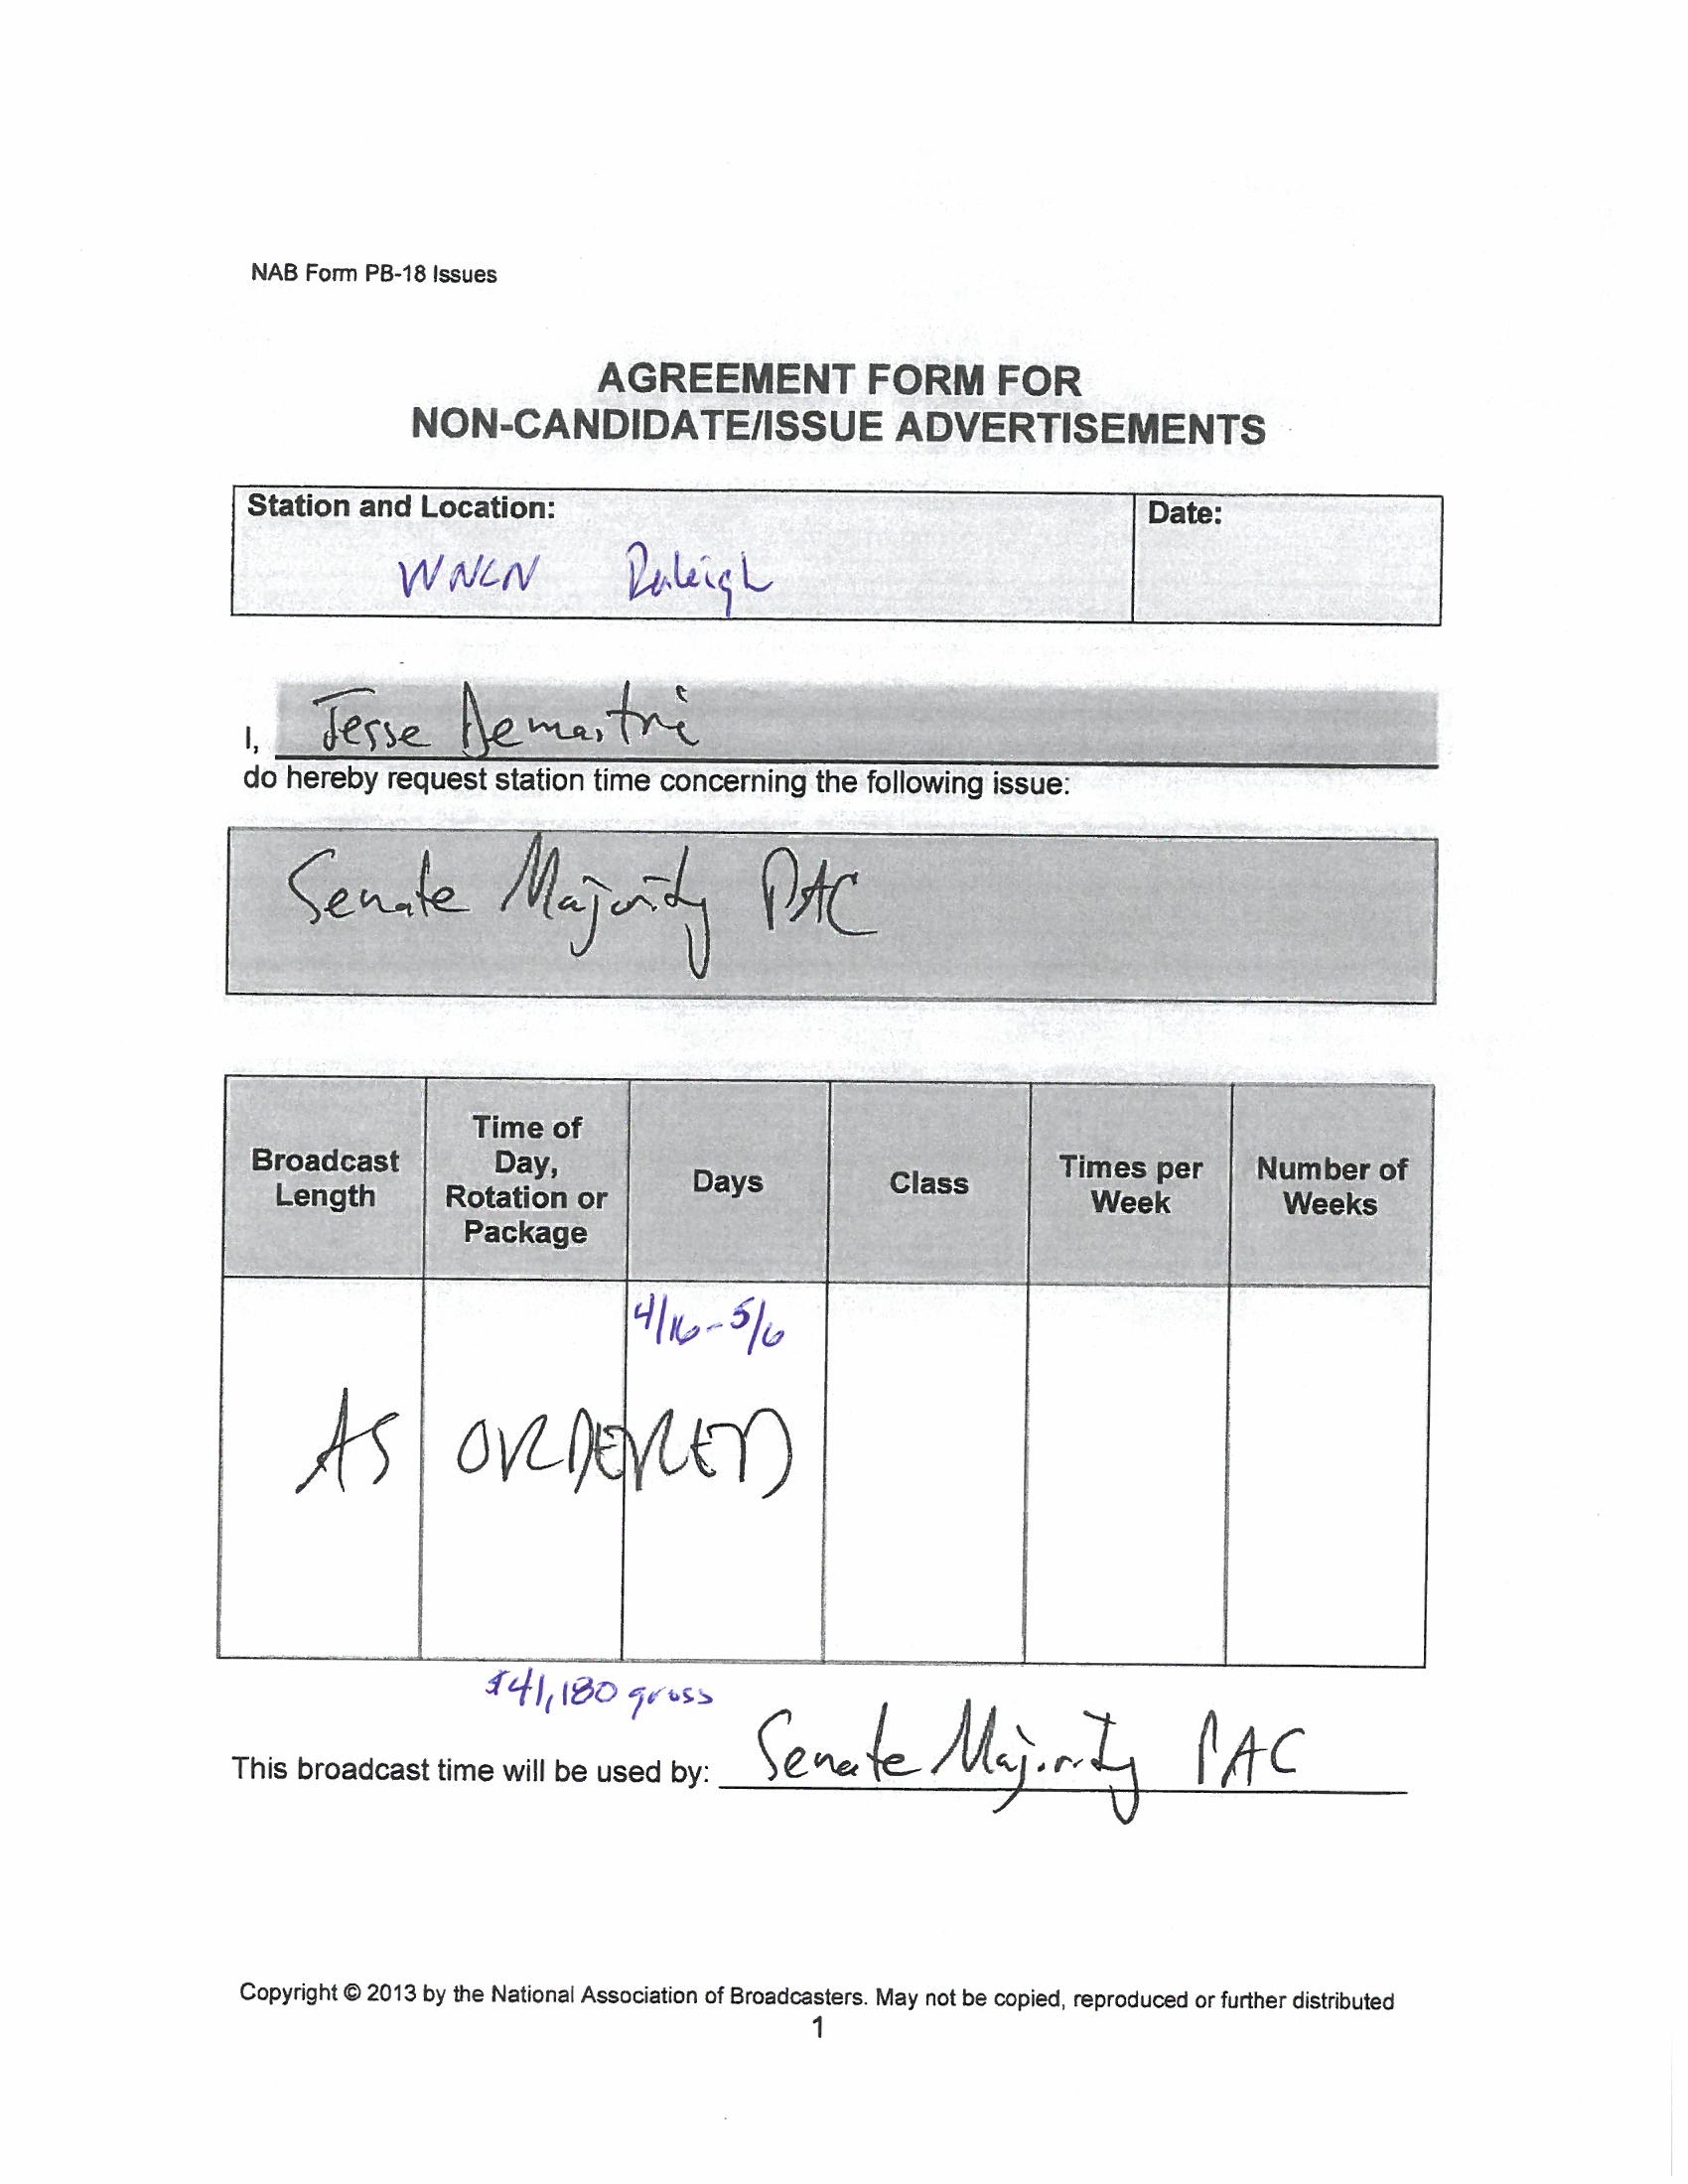 NAB Form PB-18 Issues
AGREEMENT FORM FOR
NON-CANDIDATE/ISSUE ADVERTISEMENTS
Station and Location:
Date:
WNCN Raleigh
I, Jesse Demastri
do hereby request station time concerning the following issue:
Senate Majority PAC
Broadcast Length
Time of Day, Rotation or Package
Days
Class
Times per Week
Number of Weeks
4/16-5/6
AS ORDERED
$41,180 gross
This broadcast time will be used by: Senate Majority PAC
Copyright © 2013 by the National Association of Broadcasters. May not be copied, reproduced or further distributed
1